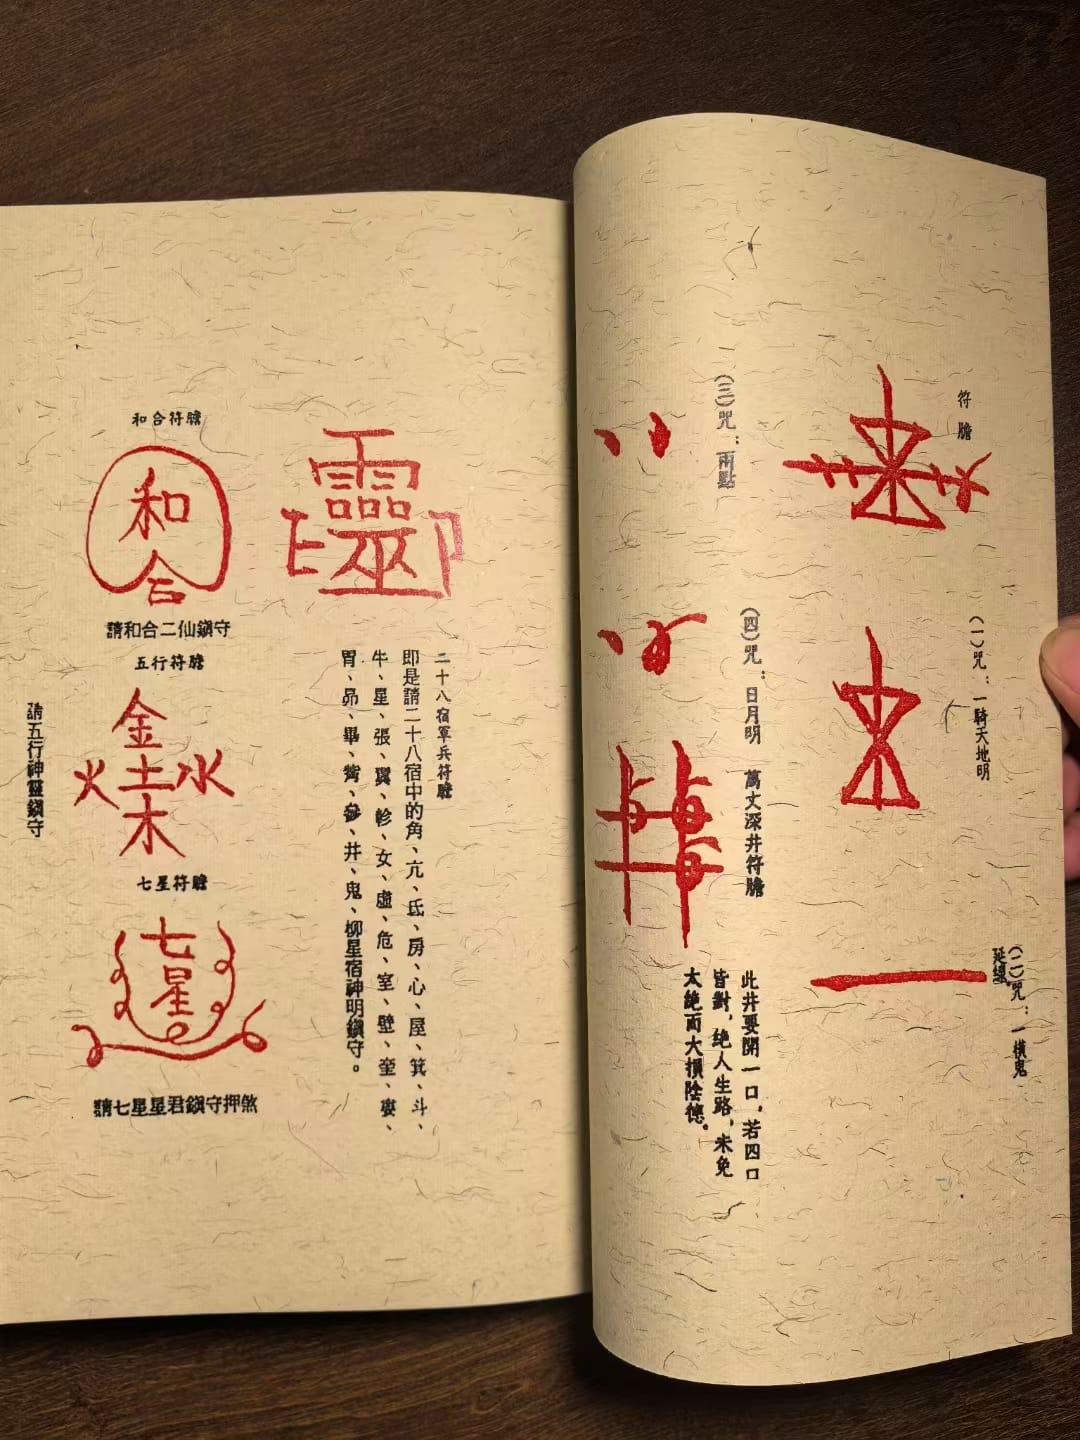 符膽
(一)咒：一騎天地明
(二)咒：一橫鬼
延線。
(三)咒：兩點
(四)咒：日月明 萬丈深井符膽
此井要開一口，若四口
皆對，絕人生路，未免
太絕而大損陰德。
靈
二十八宿軍兵符膽
即是請二十八宿中的角、亢、氐、房、心、屋、箕、斗、
牛、星、張、翼、軫、女、虛、危、室、壁、奎、婁、
胃、昴、畢、觜、參、井、鬼、柳星宿神明鎮守。
和合符膽
和
合
請和合二仙鎮守
五行符膽
金
火土水
木
七星符膽
七
星
請七星星君鎮守押煞
請五行神靈鎮守